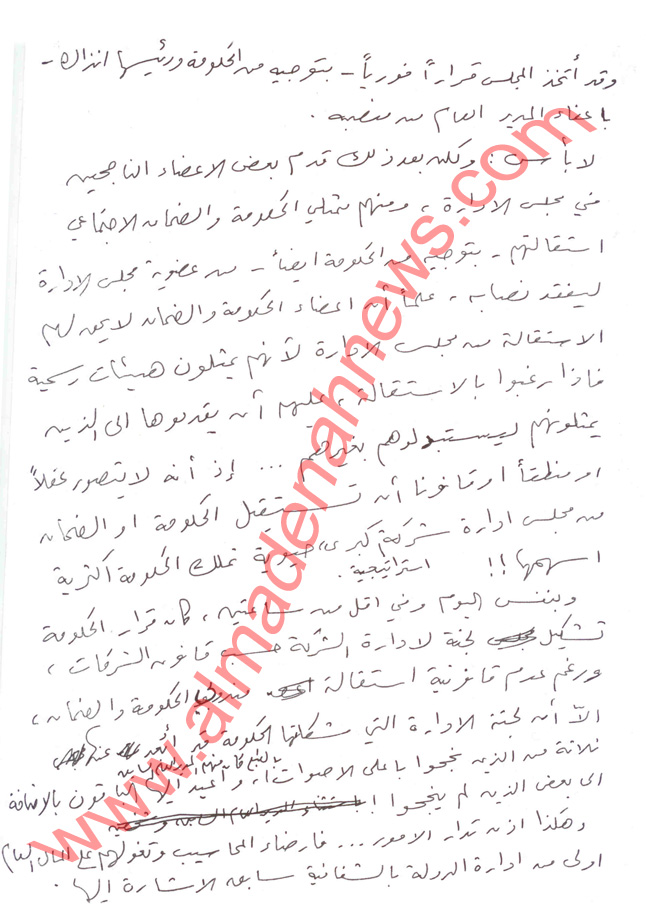 وقد أتخذ المجلس قراراً فورياً - بتوجيه من الحكومة ورئيسها انذاك -
باعفاء المدير العام من منصبه .
لا بأس : ولكن بعد ذلك قدم بعض الاعضاء الناجحين
في مجلس الادارة ، ومنهم ممثلي الحكومة والضمان الاجتماعي
استقالتهم - بتوجيه من الحكومة ايضاً - من عضوية مجلس الادارة
ليفقد نصابه ، علماً أن اعضاء الحكومة والضمان لا يحق لهم
الاستقالة من مجلس الادارة لأنهم يمثلون هيئات رسمية
فاذا رغبوا بالاستقالة ، عليهم أن يقدموها الى الذين
يمثلونهم ليستبدلوهم بغيرهم ... إذ أنه لا يتصور عقلاً
او منطقاً او قانونا أن تستقيل الحكومة او الضمان
من مجلس ادارة شركة كبرى حيوية تملك الحكومة اكثرية
اسهمها !! استراتيجية .
وبنفس اليوم وفي اقل من ساعتين ، كان قرار الحكومة
تشكيل لجنة لادارة الشركة حسب قانون الشركات ،
ورغم عدم قانونية استقالة الحكومة والضمان ،
الا أن لجنة الادارة التي شكلتها الحكومة قد أبعد عنها
ثلاثة من الذين نجحوا باعلى الاصوات ، وأعيد اليها الباقون بالاضافة
الى بعض الذين لم ينجحوا !
وهكذا اذن تدار الامور ... فارضاء المحاسيب وتغولهم على المال العام
اولى من ادارة الدولة بالشفافية سابقة الاشارة اليها .
www.almadenahnews.com